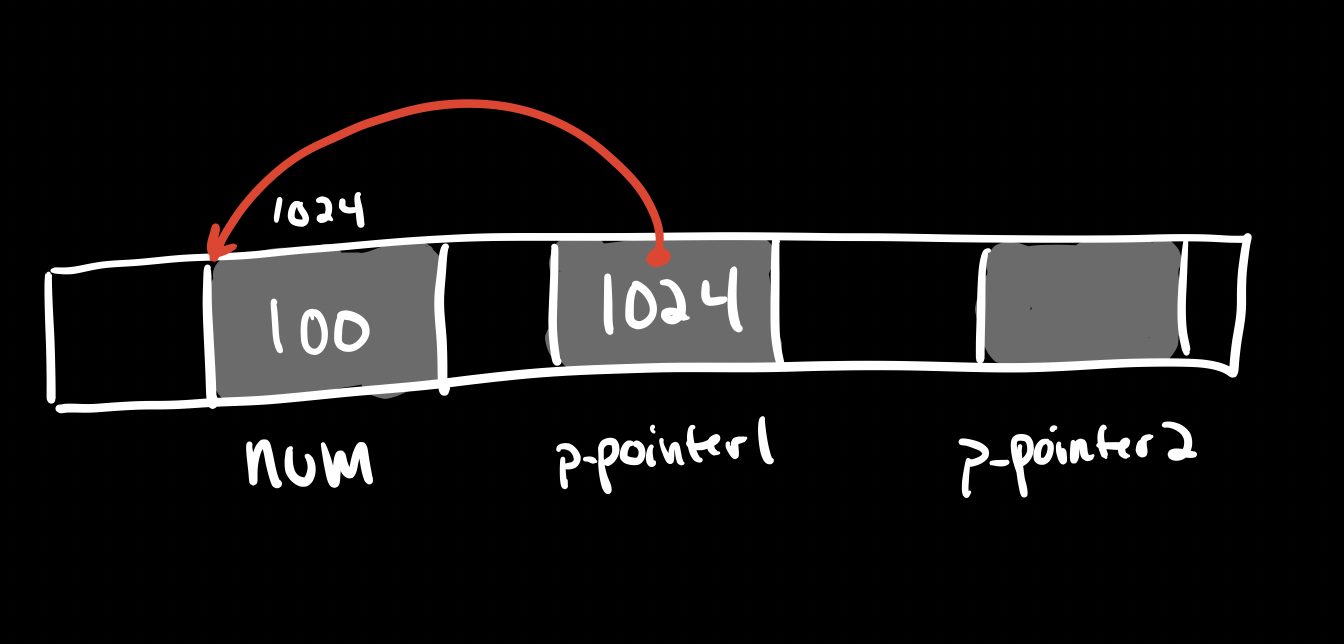 1024
100 1024
num p-pointer1 p-pointer2